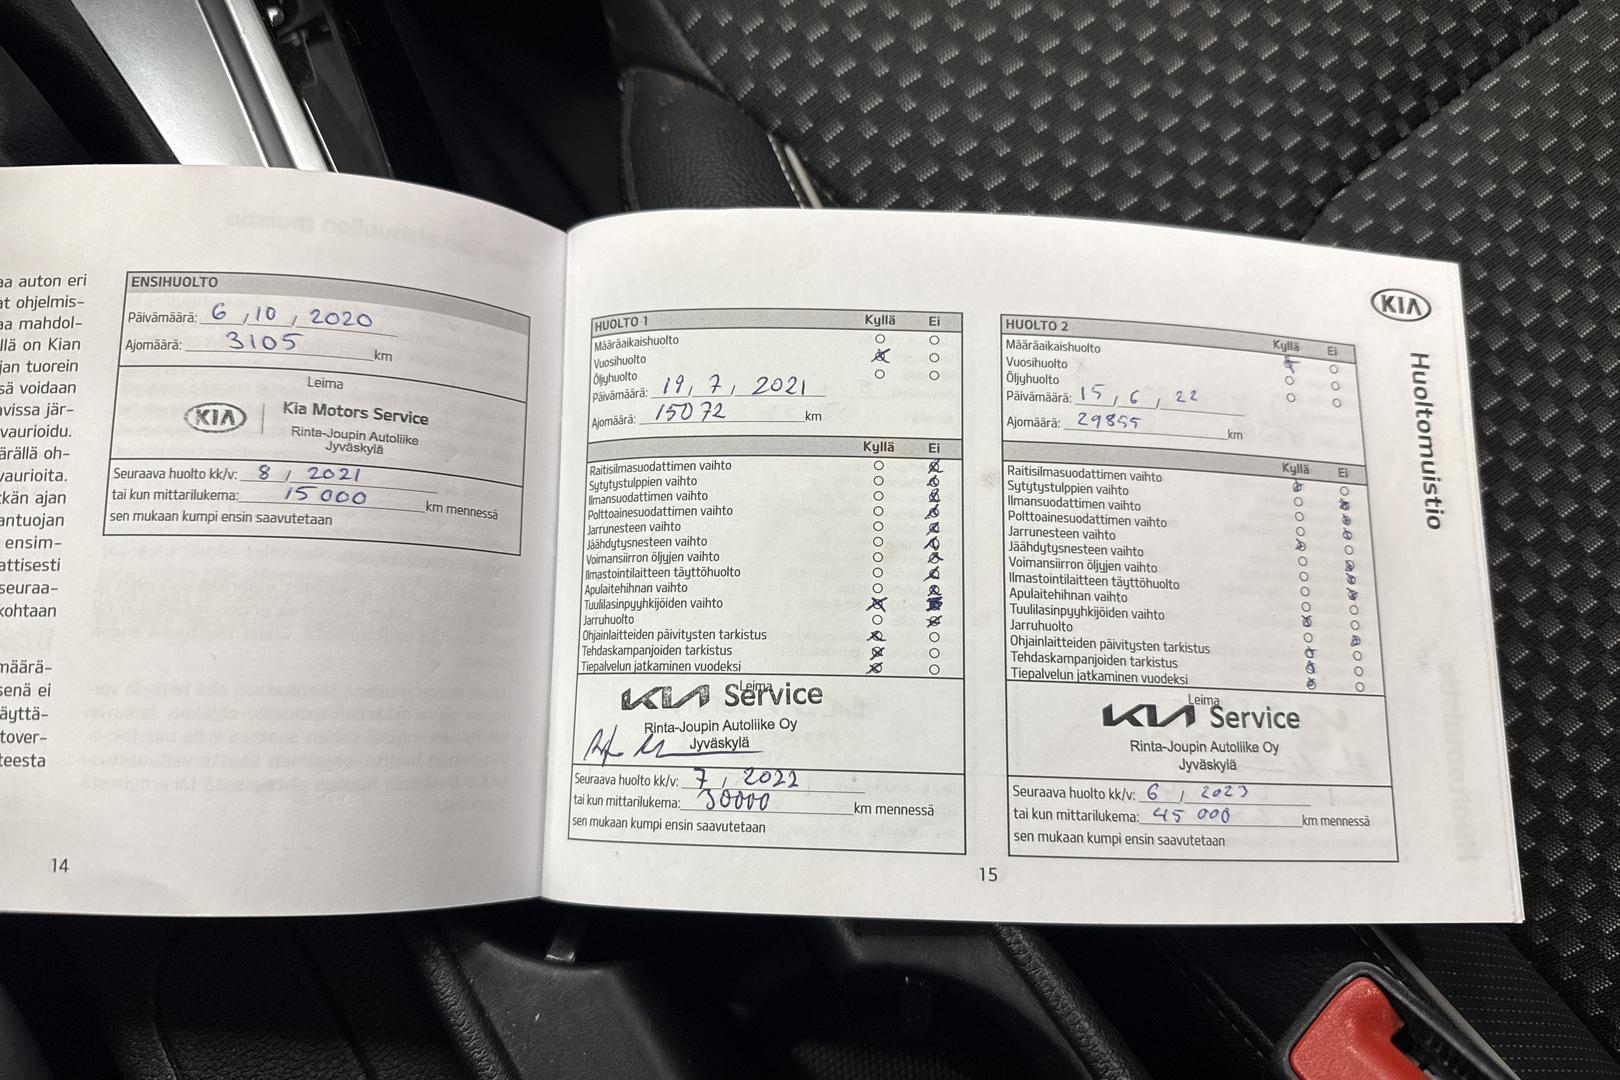 aa auton eri
at ohjelmis-
aa mahdol-
llä on Kian
jan tuorein
sä voidaan
avissa jär-
vaurioidu.
ärällä oh-
vaurioita.
kän ajan
antuojan
ensim-
attisesti
seuraa-
kohtaan
määrä-
senä ei
äyttä-
tover-
teesta
ENSIHUOLTO
Päivämäärä: 6 , 10 , 2020
Ajomäärä: 3105 km
Leima
KIA Kia Motors Service
Rinta-Joupin Autoliike
Jyväskylä
Seuraava huolto kk/v: 8 / 2021
tai kun mittarilukema: 15000 km mennessä
sen mukaan kumpi ensin saavutetaan
14
HUOLTO 1 Kyllä Ei
Määräaikaishuolto
Vuosihuolto
Öljyhuolto
Päivämäärä: 19, 7, 2021
Ajomäärä: 15072 km
Kyllä Ei
Raitisilmasuodattimen vaihto
Sytytystulppien vaihto
Ilmansuodattimen vaihto
Polttoainesuodattimen vaihto
Jarrunesteen vaihto
Jäähdytysnesteen vaihto
Voimansiirron öljyjen vaihto
Ilmastointilaitteen täyttöhuolto
Apulaitehihnan vaihto
Tuulilasinpyyhkijöiden vaihto
Jarruhuolto
Ohjainlaitteiden päivitysten tarkistus
Tehdaskampanjoiden tarkistus
Tiepalvelun jatkaminen vuodeksi
Leima
KIA Service
Rinta-Joupin Autoliike Oy
Jyväskylä
Seuraava huolto kk/v: 7 , 2022
tai kun mittarilukema: 30000 km mennessä
sen mukaan kumpi ensin saavutetaan
15
KIA
Huoltomuistio
HUOLTO 2 Kyllä Ei
Määräaikaishuolto
Vuosihuolto
Öljyhuolto
Päivämäärä: 15 , 6 , 22
Ajomäärä: 29855 km
Kyllä Ei
Raitisilmasuodattimen vaihto
Sytytystulppien vaihto
Ilmansuodattimen vaihto
Polttoainesuodattimen vaihto
Jarrunesteen vaihto
Jäähdytysnesteen vaihto
Voimansiirron öljyjen vaihto
Ilmastointilaitteen täyttöhuolto
Apulaitehihnan vaihto
Tuulilasinpyyhkijöiden vaihto
Jarruhuolto
Ohjainlaitteiden päivitysten tarkistus
Tehdaskampanjoiden tarkistus
Tiepalvelun jatkaminen vuodeksi
Leima
KIA Service
Rinta-Joupin Autoliike Oy
Jyväskylä
Seuraava huolto kk/v: 6 , 2023
tai kun mittarilukema: 45 000 km mennessä
sen mukaan kumpi ensin saavutetaan